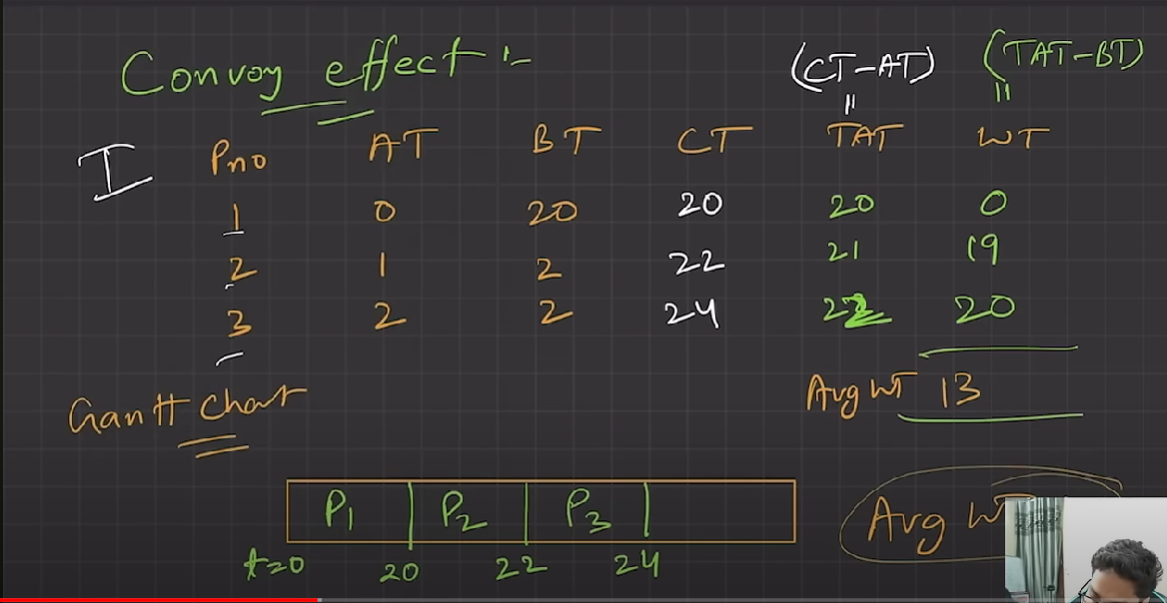 Convoy effect :-
(CT-AT) (TAT-BT)
I Pno AT BT CT TAT WT
1 0 20 20 20 0
2 1 2 22 21 19
3 2 2 24 22 20
Avg WT 13
Gantt Chart
P1 P2 P3
t=0 20 22 24
Avg